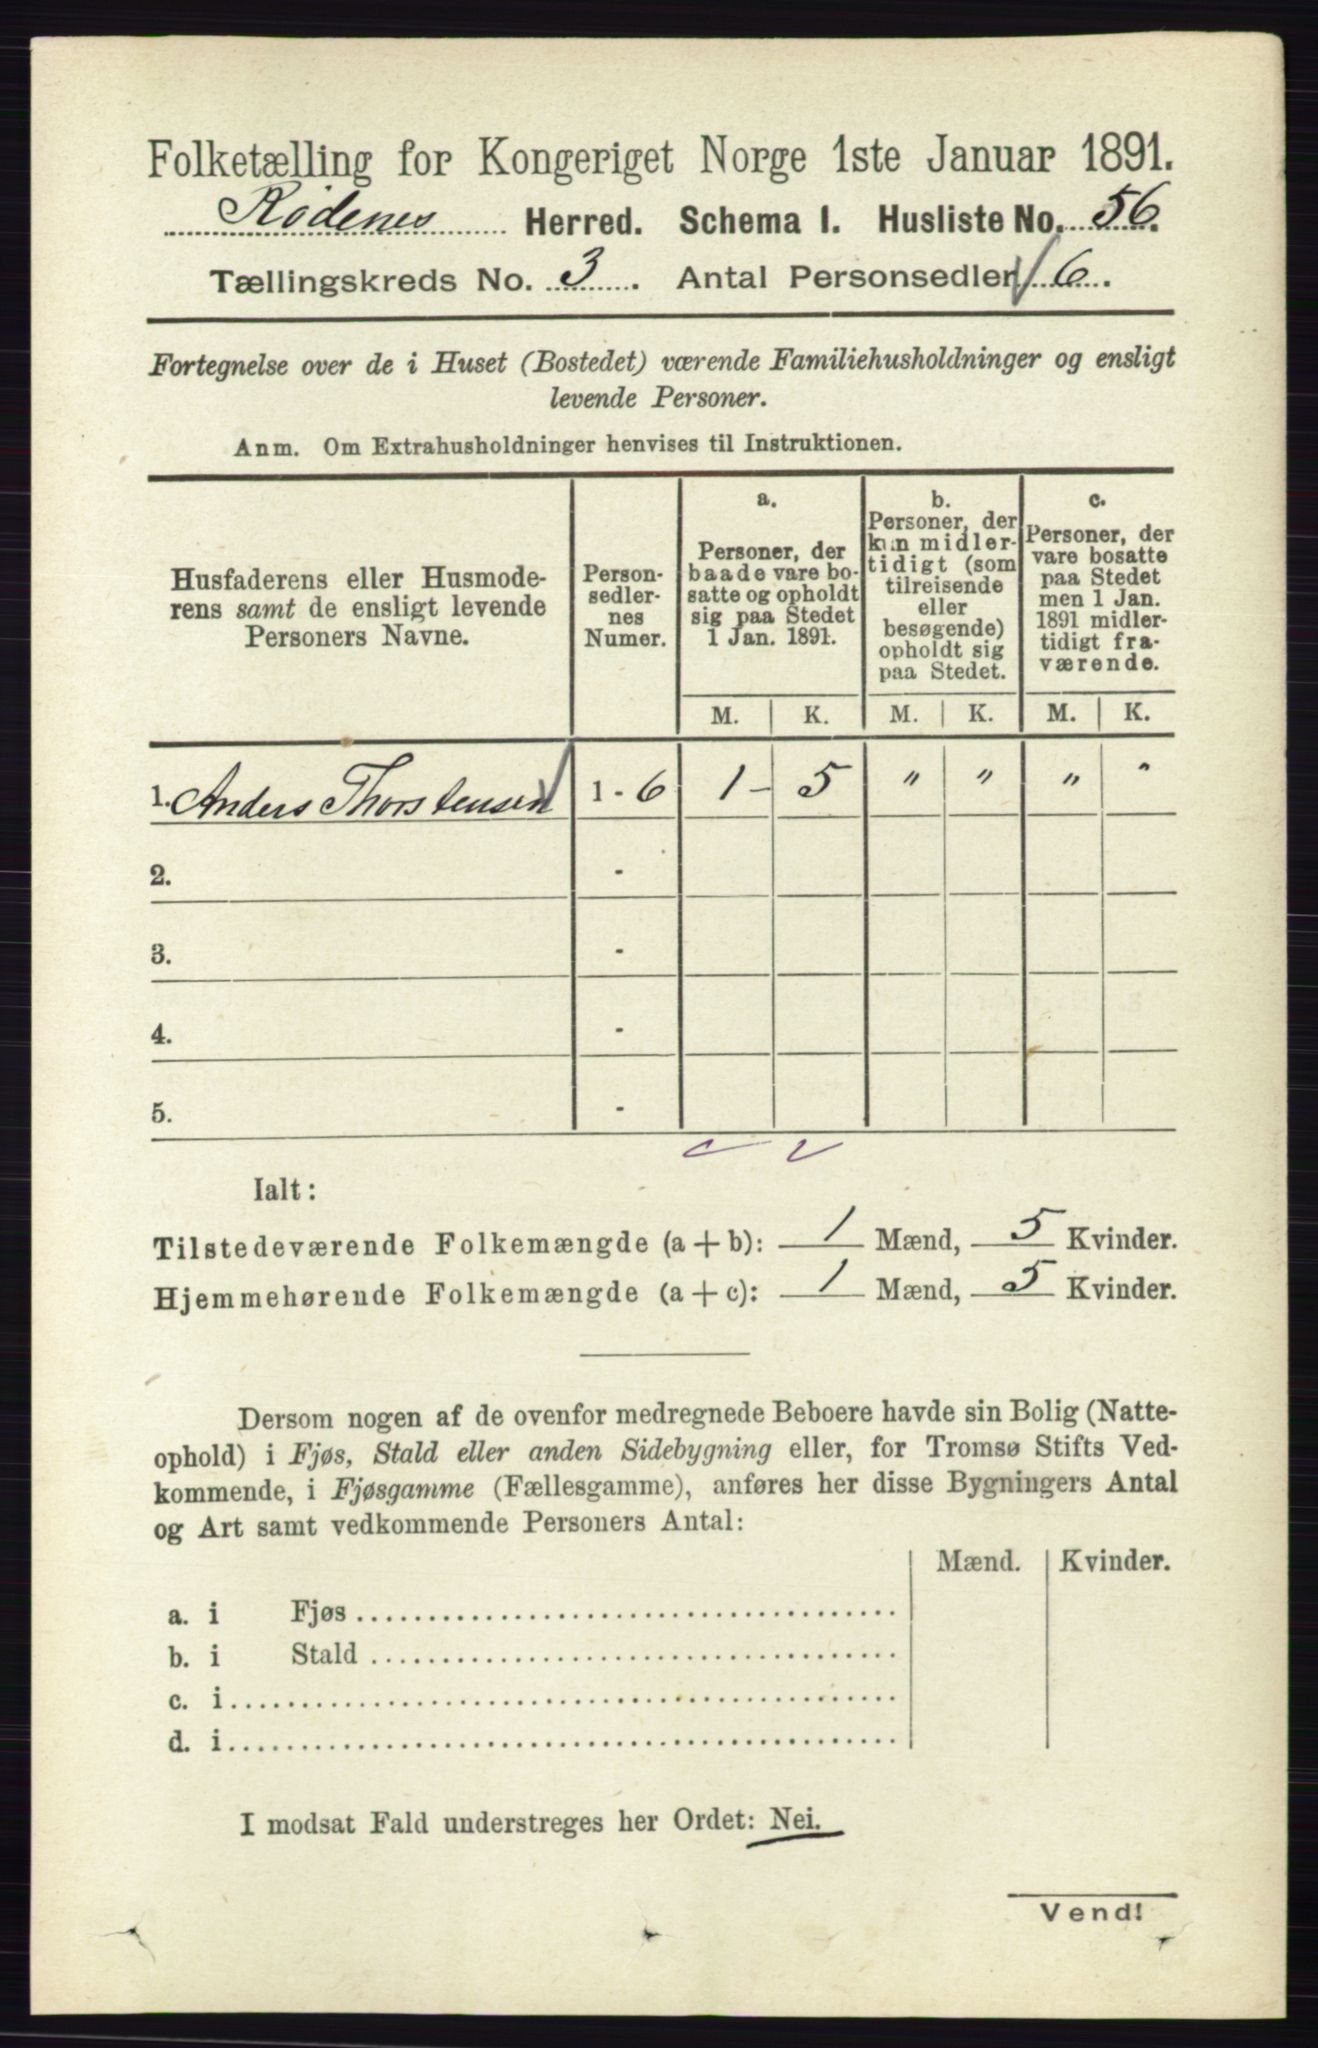 Folketælling for Kongeriget Norge 1ste Januar 1891.
Rødenes Herred. Schema I. Husliste No. 56.
Tællingskreds No. 3. Antal Personsedler 6.
Fortegnelse over de i Huset (Bostedet) værende Familiehusholdninger og ensligt
levende Personer.
Anm. Om Extrahusholdninger henvises til Instruktionen.
Husfaderens eller Husmode-
rens samt de ensligt levende
Personers Navne.
Person-
sedler-
nes
Numer.
a.
Personer, der
baade vare bo-
satte og opholdt
sig paa Stedet
1 Jan. 1891.
b.
Personer, der
kun midler-
tidigt (som
tilreisende
eller
besøgende)
opholdt sig
paa Stedet.
c.
Personer, der
vare bosatte
paa Stedet
men 1 Jan.
1891 midler-
tidigt fra-
værende.
M. K. M. K. M. K.
1. Anders Thorstensen 1 - 6 1 - 5 " " " "
2. -
3. -
4. -
5. -
Ialt:
Tilstedeværende Folkemængde (a + b): 1 Mænd, 5 Kvinder.
Hjemmehørende Folkemængde (a + c): 1 Mænd, 5 Kvinder.
Dersom nogen af de ovenfor medregnede Beboere havde sin Bolig (Natte-
ophold) i Fjøs, Stald eller anden Sidebygning eller, for Tromsø Stifts Ved-
kommende, i Fjøsgamme (Fællesgamme), anføres her disse Bygningers Antal
og Art samt vedkommende Personers Antal:
Mænd. Kvinder.
a. i Fjøs
b. i Stald
c. i
d. i
I modsat Fald understreges her Ordet: Nei.
Vend!